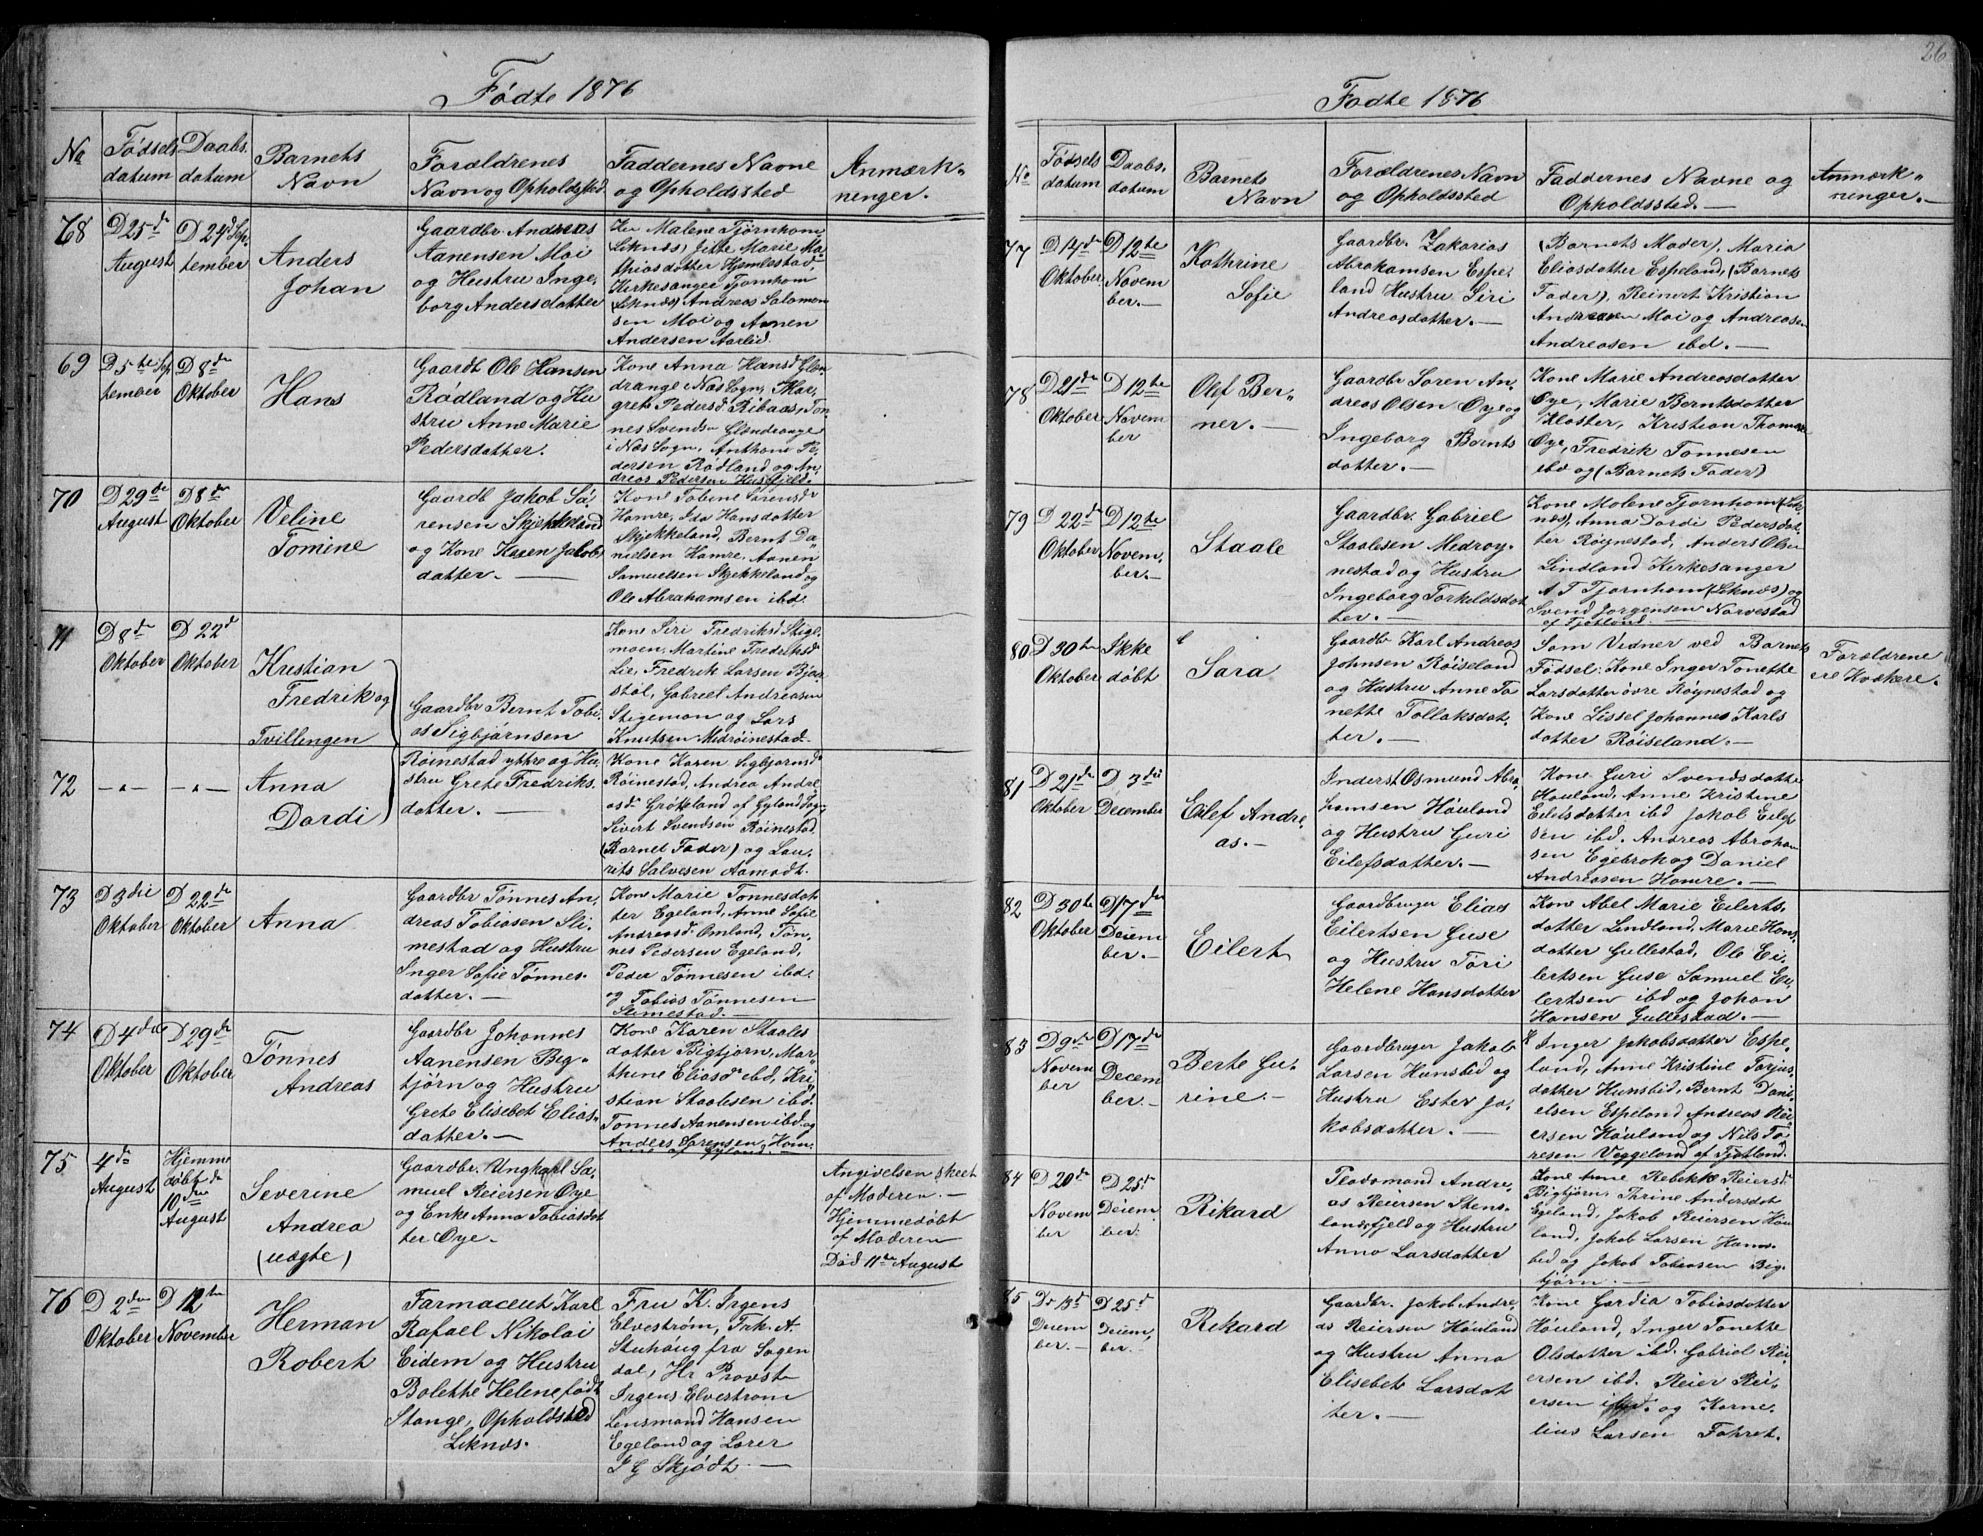 Fødte 1876
No
Fødsels
datum
Daabs
datum
Barnets
Navn
Forældrenes
Navn og Opholdssted
Faddernes Navne
og Opholdssted
Anmærk-
ninger.
68
D 25de
August
D 24d Sep
tember
Anders
Johan
Gaardbr Andreas
Aanensen Moi
og Hustru Inge,
borg Andersdatter
Malene Tjørnhom
(Leknæs) Marie Ma
thiasdatter Hjemlestad,
Kirkesanger Tjornhom
(Leknæs) Andreas Salomon
sen Moi og Aanen
Andersen Aarlid.
69
D 5te Sep
tember
D 8de
Oktober
Hans
Gaardb Ole Hansen
Rødland og Hu
stru Anne Marie
Pedersdatter.
Kone Anna Hansd Glen
drange i Næs Sogn, Mar,
grete Pedersd Ribaas, Ton
nes Svends Glendrange
i Næs Sogn, Anthone Pe
dersen Rødland og An,
dreas Pedersen Husfjeld.
70
D 29de
August
D 8de
Oktober
Veline
Tomine
Gaardb Jakob Sø
rensen Skjekkeland
og Kone Karen Jakobs
datter. —
Kone Tobine Sørensd
Hamre, Ida Hansdatter
Skjekkeland, Bernt Da
nielsen Hamre, Aanen
Samuelsen Skjekkeland og
Ole Abrahamsen ibd.
71
D 8de
Oktober
D 22d
Oktober
Kristian
Fredrik og
Tvillingen
Gaardbr Bernt Tobi,
as Sigbjørnsen
Kone Siri Fredriksd Stige
moen, Martine Fredriksd
Lie, Fredrik Larsen Bjor
støl, Gabriel Andreasen
Stigemon og Lars
Knutsen Midrøinestad.
72
— " —
— " —
Anna
Dordi
Røinestad ythre og Hu,
stru Grete Fredriks.
datter. —
Kone Karen Sigbjørnsd
Røinestad, Andrea Andre
asd Grøkland af Gyland Sogn
Sivert Svendsen Røinestad
(Barnet Fader) og Lau,
rits Salvesen Aamodt.
73
D 3die
Oktober
D 22de
Oktober
Anna
Gaardbr Tønnes An,
dreas Tobiasen Sli
mestad og Hustru
Inger Sofie Tønnes.
datter. —
Kone Marie Tonnesdat
ter Egeland, Anne Sofie
Andreasd. Omland, Tøn,
nes Pedersen Egeland,
Peder Tønnesen ibd,
og Tobias Tønnesen
Slimestad. —
74
D 4de
Oktober
D 29de
Oktober
Tønnes
Andreas
Gaardbr Johannes
Aanensen Big-
tjørn og Hustru
Grete Elisebet Elias-
datter. —
Kone Karen Staales
datter Bigtjørn, Mar,
thine Eliasd ibd, Kri
stian Staalesen ibd.
Tonnes Aanensen ibd. og
Anders Sørensen, Hom,
me af Gyland. —
75
4de
August
Hjemme
døbt d
10de
August
Severine
Andrea
(uægte)
Gaardbr. Ungkarl Sa,
muel Reiersen Øye
og Enke Anna Tobiasdat
ter Øye. —
Angivelsen skeet
af Moderen. —
Hjemmedøbt
af Moderen
Død 11te August
76
D 2den
Oktober
D 12te
November
Herman
Robert
Farmaceut Karl
Rafael Nikolai
Eidem og Hustru
Bolette Helene født
Stange, Opholdsted
Leknæs.
Fru K. Irgens
Elvestrøm, Frk. A.
Stuhaug fra Sogen
dal, Hr Provst
Irgens Elvestrøm
Lensmand Hansen
Egeland og Lærer
I G Skjødt —
26
Fødte 1876
No
Fødsels
datum
Daabs.
datum
Barnets
Navn
Forældrenes Navn
og Opholdssted
Faddernes Navne og
Opholdssted. —
Anmærk-
ninger. —
77
D 14de
Oktober
D 12te
Novem
ber. —
Kathrine
Sofie
Gaardbr. Zakarias
Abrahamsen Espe,
land Hustru Siri
Andreasdatter. —
(Barnets Moder), Maria
Eliasdatter Espeland, (Barnets
Fader), Reinert Kristian
Andreasen Moi og Andreas
Andreasen ibd. —
78
D 21de
Oktober
D 12te
Novem
ber
Olef Ber-
ner. —
Gaardbr Søren An,
dreas Olsen Øye og
Ingeborg Bernts
datter. —
Kone Marie Andreasdatter
Øye, Marie Berntsdatter
Kloster, Kristian Thomas
Øye, Fredrik Tonnesen
ibd og (Barnets Fader)
79
D 22de
Oktober
D 12te
Novem,
ber. —
Staale
Gaardbr. Gabriel
Staalesen Medrøy,
nestad og Hustru
Ingeborg Torkeldsdat
ter. —
Kone Malene Tjornhom (Lek
næs), Anna Dordi Pedersdat
ter Røynestad, Anders Olsen
Lindland Kirkesanger
A T Tjornhom (Leknæs) og
Svend Jørgensen Narvestad
af Fjotland. —
80
D 30te
Oktober
Ikke
døbt
Sara
Gaardbr Karl Andreas
Johnsen Røiseland
og Hustru Anne To
nette Tollaksdat,
ter. —
Som Vidner ved Barnets
Fødsel: Kone Inger Tonette
Larsdatter øvre Røynestad og
Kone Lissel Johanne Karls
datter Røiseland. —
Forældrene
ere Kvækere.
81
D 21de
Oktober
D 3die
December
Eilef Andre,
as. —
Inderst Osmund Abra
hamsen Høuland
og Hustru Guri
Eilefsdatter. —
Kone Guri Svendsdatter
Høuland, Anne Kristine
Eilefsdatter ibd Jakob Eilef
sen ibd. Andreas Abraham
sen Egebrok og Daniel
Andreasen Homre. —
82
D 30te
Oktober
D 17de
Deiem
ber. —
Eilert
Gaardbruger Elias
Eilertsen Guse
og Hustru Tori
Helene Hansdatter
Kone Abel Marie Eilerts,
datter Lindland, Marie Hans,
datter Gullestad, Ole Ei,
lertsen Guse Samuel Ei,
lertsen ibd og Johan
Hansen Gullestad. —
83
D 9de
Novem
ber
D 17de
Decem
ber. —
Berte Gu,
rine. —
Gaardbruger Jakob
Larsen Hunsbid og
Hustru Ester Ja,
kobsdatter. —
Inger Jakobsdatter Espe,
land, Anne Kristine Torjus
datter Hunsbid, Bernt Dani,
elsen Espeland Andreas Rei
ersen Høuland og Nils To
resen Veggeland af Fjotland.
84
D 20de
Novem
ber
D 25d
Deiem
ber.
Rikard
Plodsmand Andre,
as Reiersen Stens,
landsfjeld og Hustru
Anna Larsdatter
Kone Anne Rebekke Reiersd
Bigtjørn, Thrine Andersdat
Egeland, Jakob Reiersen Høu
land, Jakob Larsen Huns,
bid og Jakob Tobiasen Big,
tjørn. —
85
D. 13d
Deiem
ber. —
D 25d
Deiem,
ber. —
Rikard
Gaardbr. Jakob Andre,
as Reiersen Høuland
og Hustru Anna
Elisebet Larsdat
ter. —
Kone Gardia Tobiasdatter
Høuland, Inger Tonette
Olsdatter ibd. Gabriel Rei
ersen ibd. Reier Rei,
ersen ibd. og Korne,
lius Larsen Fahret.